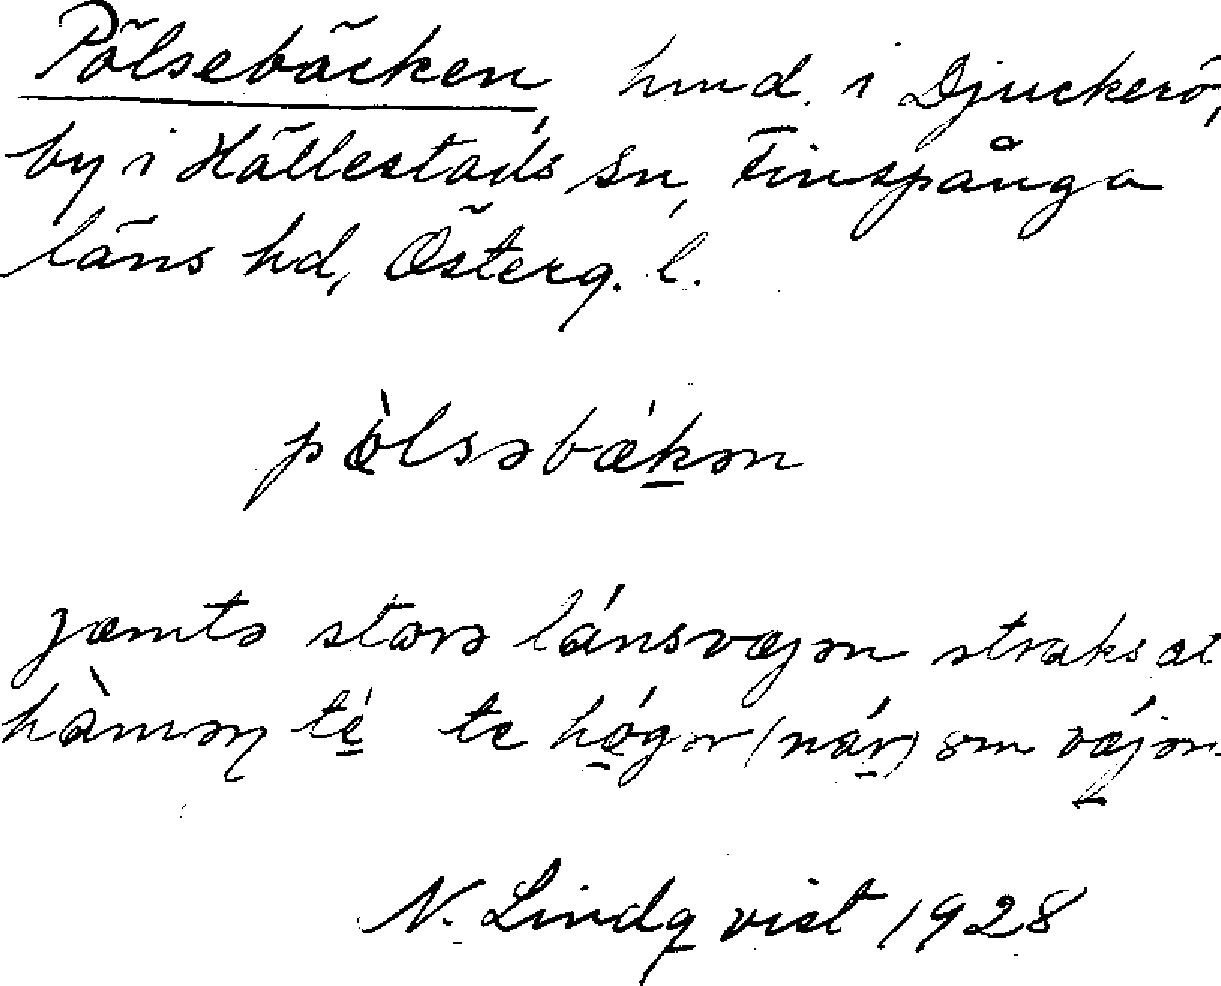 Pölsebäcken, hmd. i Djuckerö,
by i Hällestads sn, Finspånga
läns hd, Österg. l.
pòlsəbækən
jæmtə storə lánsvæjən straks
hàmən té te hógər (nár) om væjən
N. Lindqvist 1928